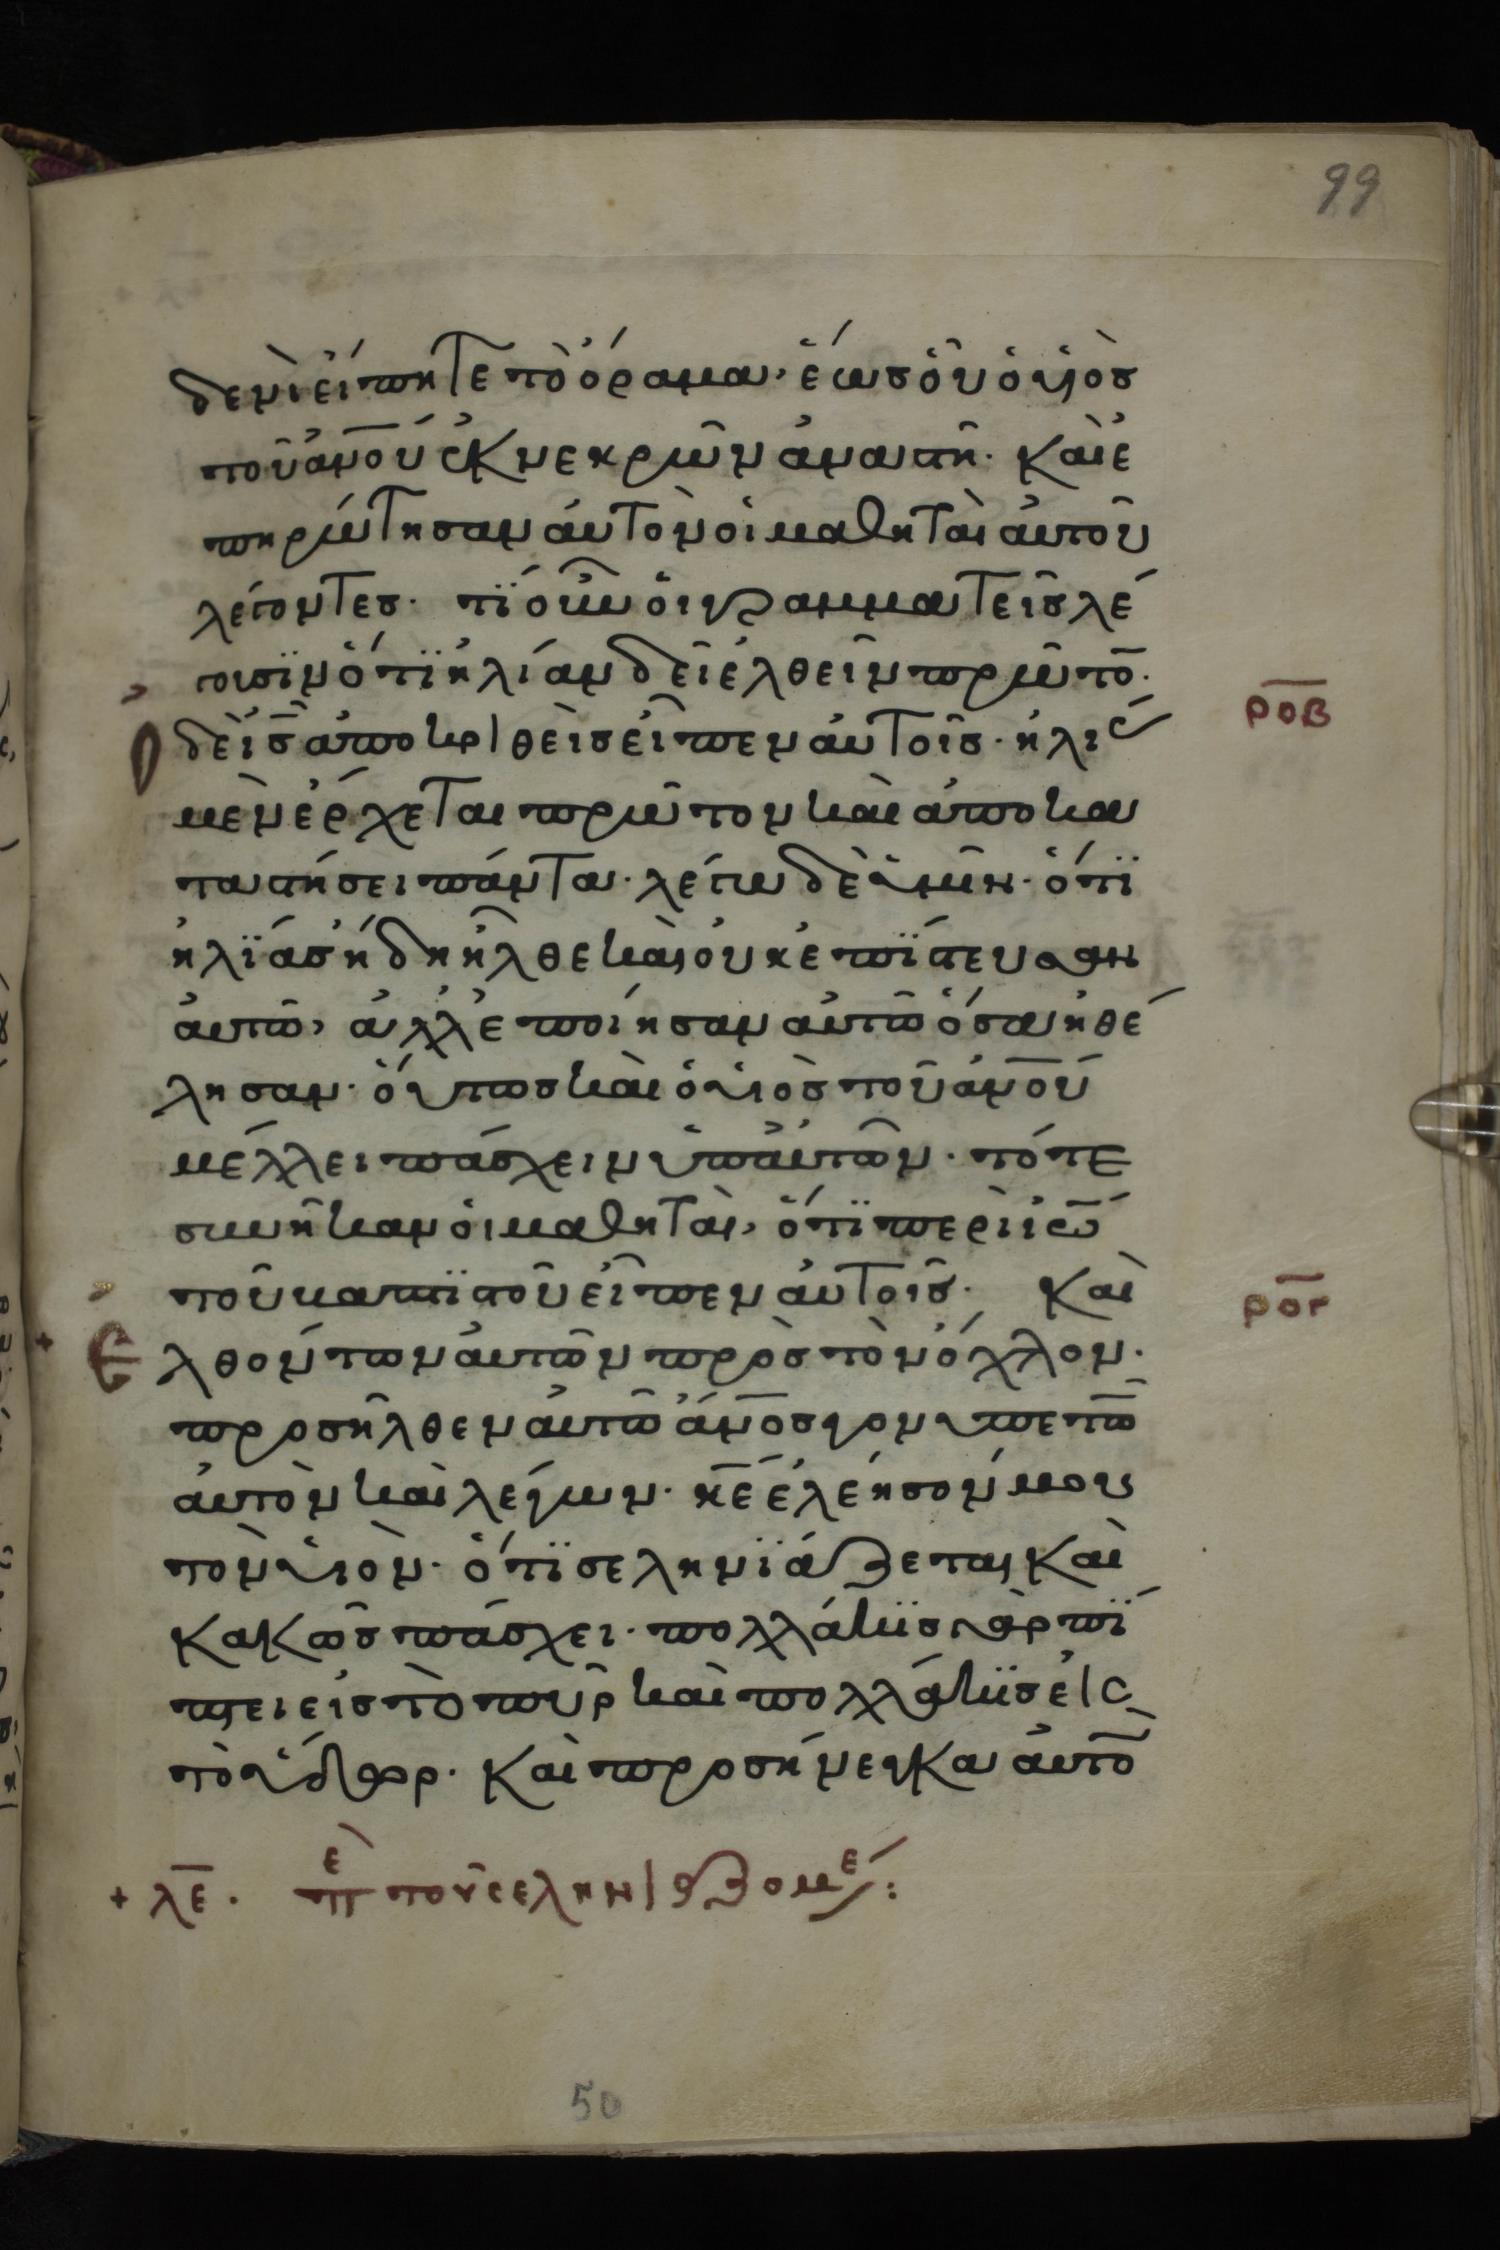 99
δενὶ εἴπητε τὸ ὅραμα, ἕως οὗ ὁ υἱὸς
τοῦ ἀν̅ο̅υ̅ ἐκ νεκρῶν ἀναστῆ. Καὶ ἐ
πηρώτησαν αὐτὸν οἱ μαθηταὶ αὐτοῦ
λέγοντες. τί οὖν οἱ γραμματεῖς λέ
γουσϊν ὅτϊ ἠλίαν δεῖ ἐλθεῖν πρῶτο̅.
Ὁ δὲ ι̅ς̅ ἀποκριθεὶς εἶπεν αὐτοῖς. ἠλί(ας)
ρ̅ο̅β̅
μὲν ἔρχεται πρῶτον καὶ ἀποκα
ταστήσει πάντα. λέγω δὲ ὑμῖν. ὅτϊ
ἠλΐας ἤδη ἦλθε καὶ οὐκ ἐπΐστευσαν
αὐτῶ, ἀλλ ἐποίησαν αὐτῶ ὅσα ἠθέ
λησαν. οὕτως καὶ ὁ υἱὸς τοῦ ἀν̅ο̅υ̅
μέλλει πάσχειν ὑπ αὐτῶν. τότε
συνῆκαν οἱ μαθηταὶ, ὅτϊ περὶ ἰω̅
τοῦ βαπτϊστοῦ εἶπεν αὐτοῖς. Καὶ
ρ̅ο̅γ̅
+ Ἐλθόντων αὐτῶν πρὸς τὸν ὄχλον.
προσῆλθεν αὐτῶ ἀν̅ο̅ς̅ γονυπετῶ̅
αὐτὸν καὶ λέγων. κ̅ε̅ ἐλέησόν μου
τὸν υἱὸν. ὅτϊ σεληνϊάζεται καὶ
κακῶς πάσχει. πολλάκϊς γὰρ πΐ
πτει εἰς τὸ πῦρ καὶ πολλάκϊς εἰς
τὸ ὕδωρ. Καὶ προσήνεγκα αὐτὸ̅
+ λ̅ε̅. πε τοῦ σεληνιαζομέ:
50